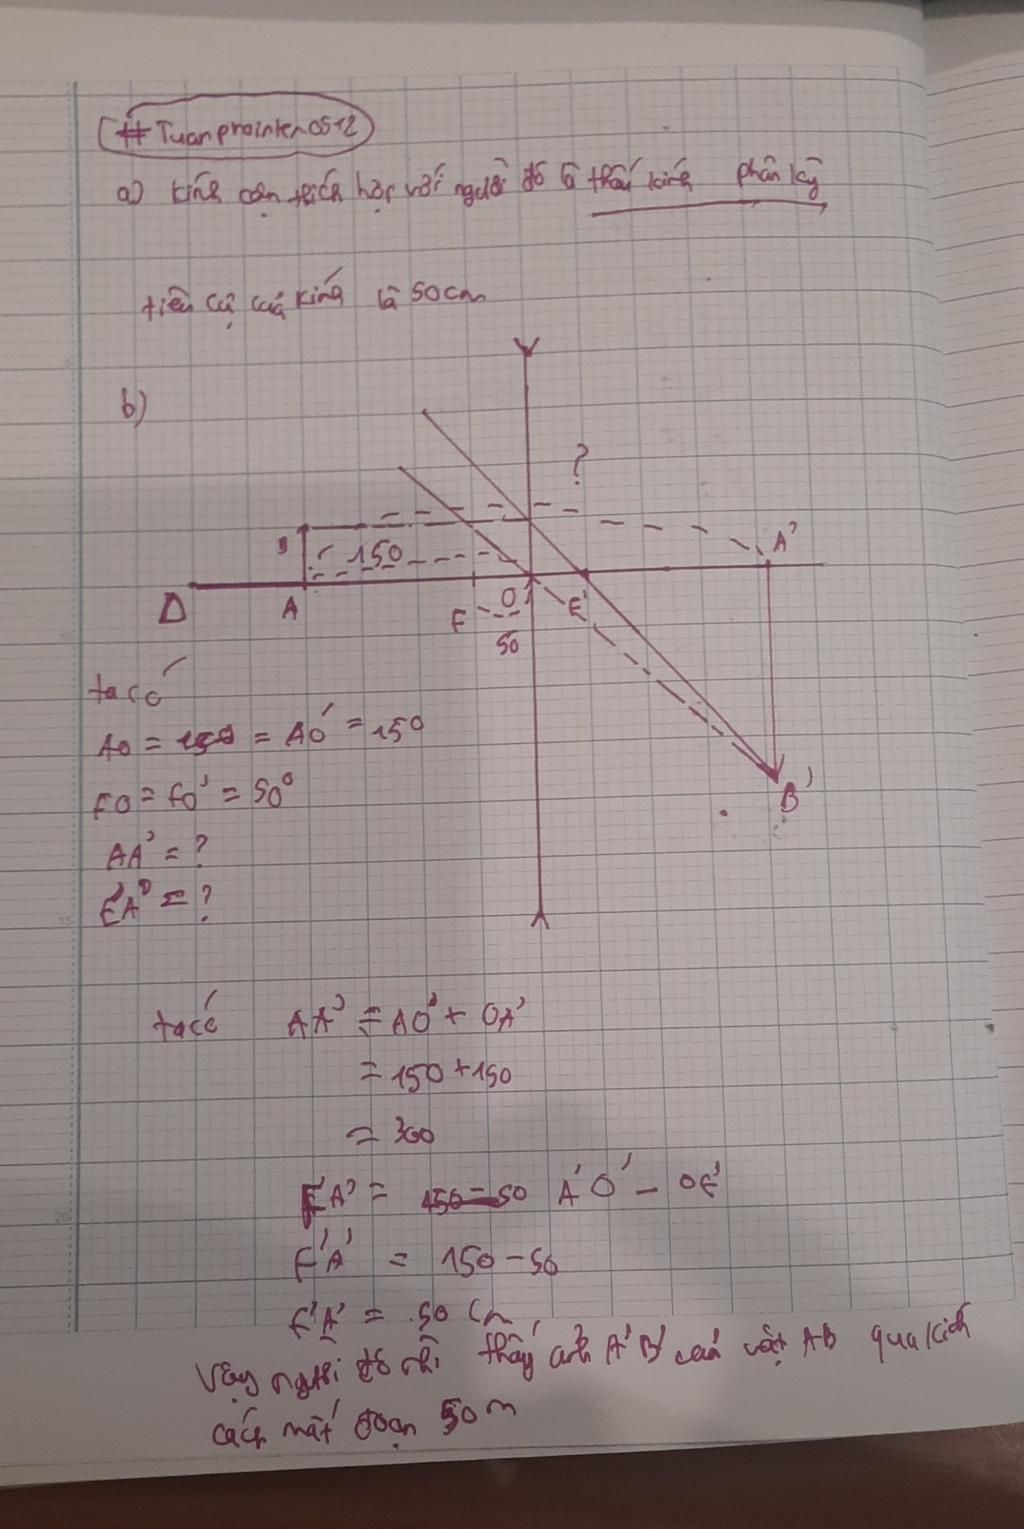 # Tuanprointer0512
a) kính cận thích hợp với người đó là thấu kính phân kỳ
tiêu cự của kính là 50cm
b)
?
150
A'
Δ
A
F
O
F'
50
B'
ta có
AO = 150 = AO' = 150
FO = FO' = 50
AA' = ?
F'A' = ?
ta có AA' = AO' + OA'
= 150 + 150
= 300
F'A' = 150 - 50 A'O' - OF'
F'A' = 150 - 50
F'A' = 50 cm
Vậy người đó nhì thấy ảnh A'B' của vật AB qua kính
cách mắt đoạn 50m